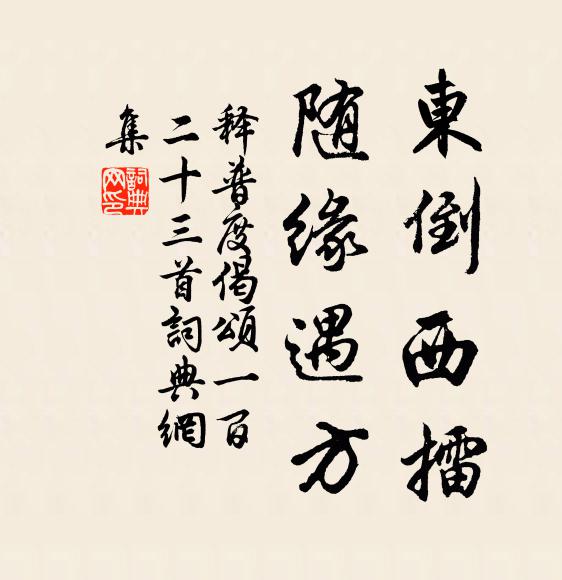 東倒西擂
随緣遇方
释普度偈頌一百
二十三首詞典網
集
詞典
网印